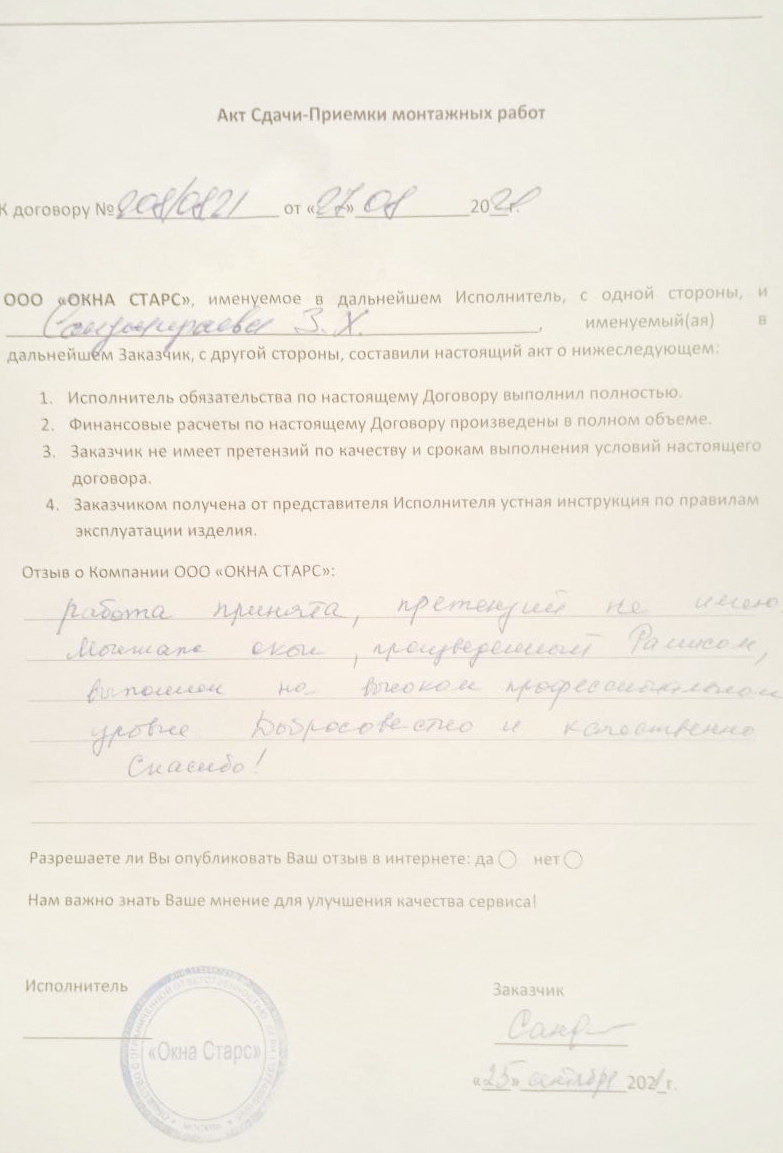 Акт Сдачи-Приемки монтажных работ
К договору № 208/0821 от «27» 08 2021 г.
ООО «ОКНА СТАРС», именуемое в дальнейшем Исполнитель, с одной стороны, и
З.Х. , именуемый(ая) в
дальнейшем Заказчик, с другой стороны, составили настоящий акт о нижеследующем:
1. Исполнитель обязательства по настоящему Договору выполнил полностью.
2. Финансовые расчеты по настоящему Договору произведены в полном объеме.
3. Заказчик не имеет претензий по качеству и срокам выполнения условий настоящего
договора.
4. Заказчиком получена от представителя Исполнителя устная инструкция по правилам
эксплуатации изделия.
Отзыв о Компании ООО «ОКНА СТАРС»:
работа принята, претензий не имею
Монтаж окон, произведенный Рамисом,
выполнен на высоком профессиональном
уровне. Добросовестно и качественно
Спасибо!
Разрешаете ли Вы опубликовать Ваш отзыв в интернете: да нет
Нам важно знать Ваше мнение для улучшения качества сервиса!
Исполнитель
Заказчик
«Окна Старс»
ОБЩЕСТВО С ОГРАНИЧЕННОЙ ОТВЕТСТВЕННОСТЬЮ
МОСКВА
«25» сентября 2021 г.